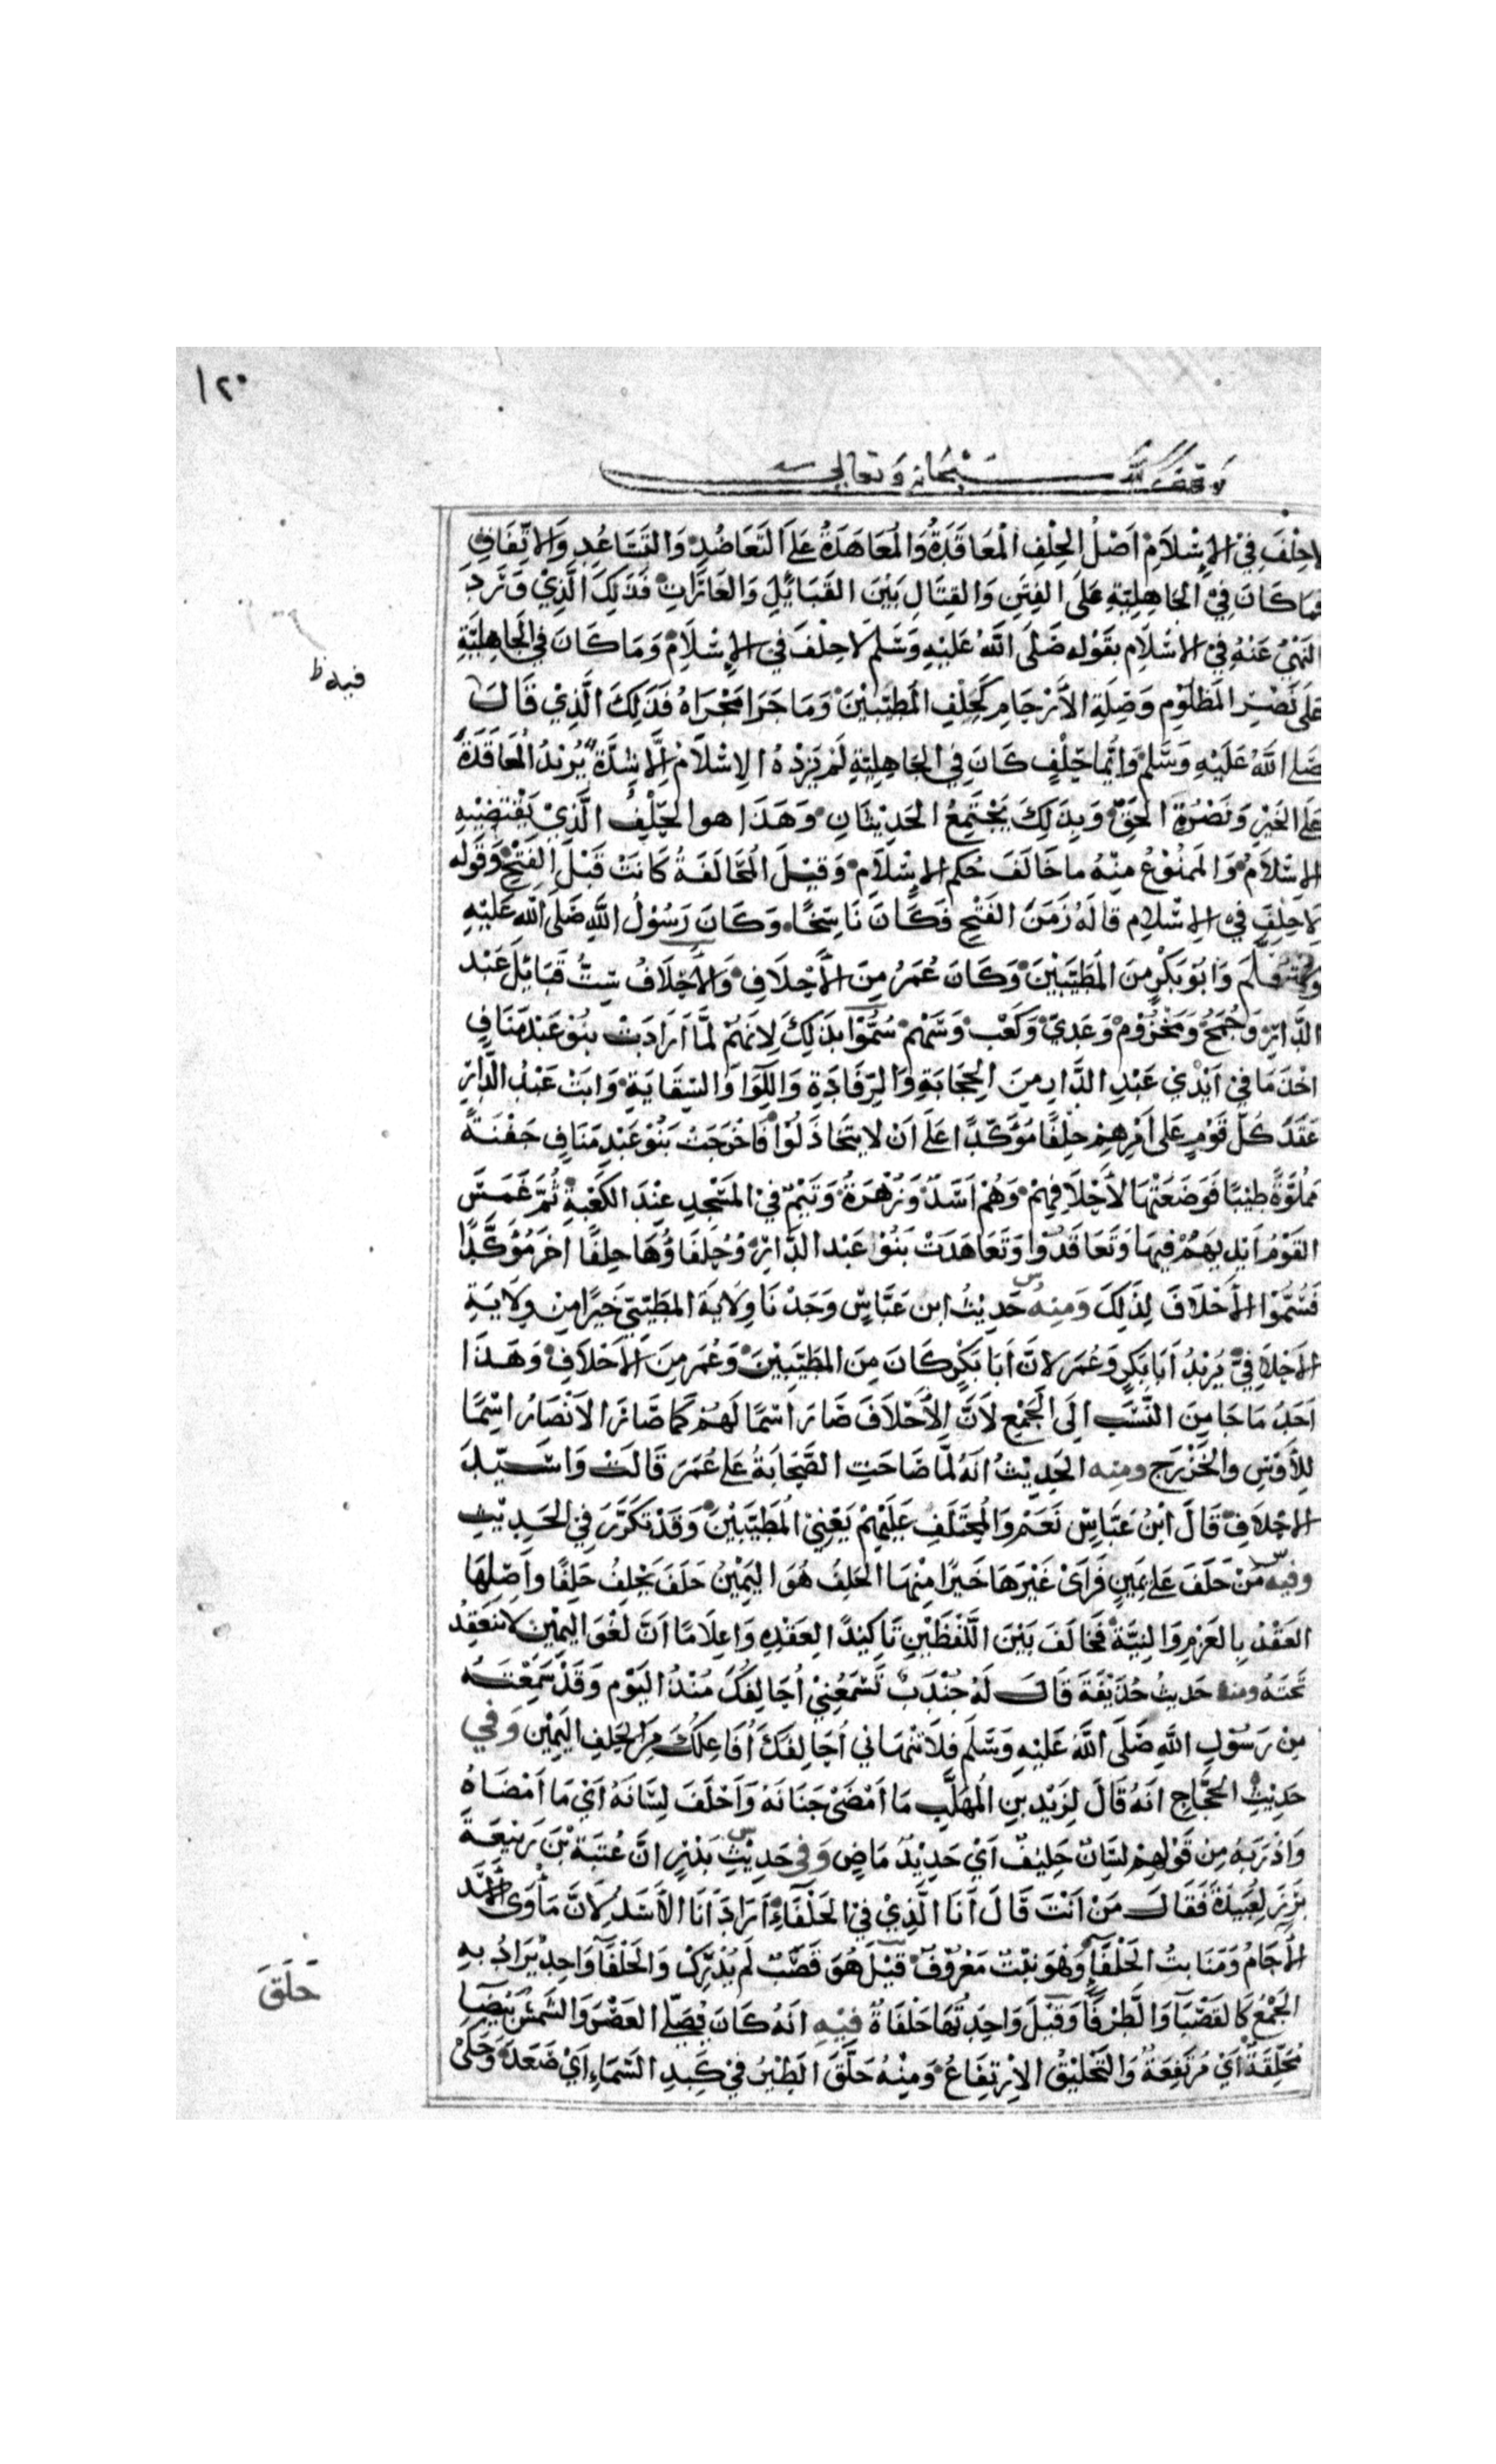 ١٢٠
وقف لله سبحانه وتعالى
لاحِلْفَ فِي الإِسْلاَمِ اَصْلُ الحِلْفِ المُعَاقَدَةُ وَالمُعَاهَدَةُ عَلَى التَعَاضُدِ وَالتَسَاعُدِ وَالاِتِّفَاقِ
فمَا كَانَ فِي الجَاهِلِيَّةِ عَلَى الفِتَنِ وَالقِتَالِ بَيْنَ القَبَائِلِ وَالغَارَاتِ فَذَلِكَ الَّذِيْ وَرَدَ
النَهْيُ عَنْهُ فِي الاسْلاَمِ بقَوْلِه صَلَى اللَّهُ عَلَيْهِ وَسَلَم لاَحِلْفَ فِي الإِسْلاَمِ وَمَا كَانَ فِي الجَاهِلِيَّةِ
فيه ظ
عَلَى نَصْرِ المَظْلُوْمِ وَصِلَةِ الأَرْحَامِ كَحِلْفِ المُطَيَّبِيْنَ وَمَا جَرَا مَجْرَاهُ فَذَلِكَ الَّذِيْ قَالَ
صَلى اللَّهُ عَلَيْهِ وَسَلَّم وَاَيُّمَا حِلْفٍ كَانَ فِي الجَاهِلِيَّةِ لَمْ يَزِدْهُ الإِسْلاَمُ اِلَّا شِدَّةً يُرِيْدُ المُعَاقَدَةَ
عَلَى الخَيْرِ وَنُصْرَةِ الحَقِّ وَبِذَلِكَ يَجْتَمِعُ الحَدِيْثَانِ وَهَذَا هوَ الحِلْفُ الَّذِيْ يَقْتَضِيْهِ
الاِسْلاَمُ وَالمَمْنُوْعُ مِنْهُ مَا خَالَفَ حُكم الاِسْلاَمِ وَقِيْلَ المُحَالَفَةُ كَانَتْ قَبْلَ الفَتْحِ وَقَوْله
لاَحِلْفَ فِي الاِسْلاَمِ قَالَهُ زَمَنَ الفَتْحِ فَكَانَ نَاسِخًا وَكَانَ رَسُوْلُ اللَّهِ صَلَّى اللَّه عَلَيْهِ
وَسَلَّمَ وَابُوْ بَكْرٍ مِنَ المُطَيَّبِيْنَ وَكَانَ عُمَرُ مِنَ الأَحْلاَفِ وَالأَحْلاَفُ سِتُّ قَبَائِلَ عَبْد
الدَّارِ وَجُمَحُ وَمَخْزُوْمٌ وَعَدِيّ وَكَعْبٌ وَسَهْمٌ سُمُّوْا بِذَلِكَ لِاَنَّهُمْ لَمَّا اَرَادَتْ بَنُوْ عَبْدِمَنَافٍ
اخْذَ مَا فِي اَيْدِيْ عَبْدِ الدَّارِ مِنَ الحِجَابَةِ وَالرِّفَادَةِ وَاللِّوَا وَالسِّقَايَةِ وَابَتْ عَبْدُ الدَّارِ
عَقَدَ كُلُّ قَوْمٍ عَلَى اَمْرِهِمْ حِلْفًا مُؤَكَّدًا عَلَى اَنْ لاَ يَتَخَاذَلُوْا فَاخْرَجَتْ بَنُوْ عَبْدِ مَنَافٍ جَفْنَةً
مَمْلُوَّةً طِيْبًا فَوَضَعَتْهَا لأَحْلاَفِهِمْ وَهُمْ اَسَدٌ وَزُهْرَةُ وَتَيْمٌ فِي المَسْجِدِ عِنْدَ الكَعْبَةِ ثُمَّ غَمَسَ
القَوْمُ اَيْدِيَهُمْ فِيهَا وَتَعَاقَدُوْا وَتَعَاهَدَتْ بَنُوْ عَبْد الدَّارِ وَحُلَفَاؤُهَا حِلفًا اخَرَ مُؤَكَّدًا
فَسُمُّوْا الأَحْلاَفَ لِذَلِكَ وَمِنهُ س حَدِيْثُ ابن عَبَّاسٍ وَجَدْنَا وِلاَيَةَ المُطَيَّبِيّ خَيرًا مِن وِلاَيَةِ
الاَحْلاَفِيِّ يُرِيْدُ اَبَا بَكرٍ وَعُمَرَ لاَنَّ اَبَا بَكْرٍ كَانَ مِنَ المُطَيَّبِيْنَ وَعُمَرَ مِنَ الاَحْلاَفِ وَهَذَا
اَحَدُ مَا جَا مِنَ النَّسَب اِلَى الجَمْعِ لاَنَّ الأَحْلاَفَ صَارَ اسْمًا لَهُمْ كَمَا صَارَ الاَنْصَارُ اسْمًا
لِلأَوْسِ وَالخَزْرَجِ ومنه الحَدِيْثُ انَهُ لَمَّا صَاحَتِ الصَّحَابَةُ عَلى عُمَرَ قَالَتْ وَاسَيِّدَ
الاَحْلاَفِ قَالَ ابْنُ عَبَّاسٍ نَعَمْ وَالمُحْتَلَفِ عَلَيْهِمْ يَعْنِي المُطَيَّبِيْنَ وَقَدْ تَكَرَّرَ فِي الحَدِيْثِ
وفيه س مَنْ حَلَفَ عَلَى يَمِينٍ فَرَاَىْ غَيْرَهَا خَيْرًا مِنْهَا الحَلِفُ هُوَ اليَمِيْنُ حَلَفَ يَحْلِفُ حَلِفًا وَاَصْلُهَا
العَقْدُ بِالعَزْمِ وَالنِيَّةِ فَخَالَفَ بَيْنَ اللَّفْظَيْنِ تَاكِيْدًا لِعَقْدِهِ وَاِعْلاَمًا اَنَّ لَغْوَ اليَمِيْنِ لاَ يَنْعَقِدُ
تَحْتَهُ ومنه حَدِيثُ حُذَيْفَةَ قَالَ لَهُ جُنْدَبٌ تَسْمَعُنِيْ اُحَالِفُكَ مُنْذُ اليَوْمِ وَقَدْ سَمِعْتَهُ
مِنْ رَسُوْلِ اللَّهِ صَلَّى اللَّهُ عَلَيْهِ وَسَلَّمَ فَلاَ تَنْهَاني اُحَالِفُكَ اُفَاعِلُكَ مِنَ الحَلِفِ اليَمِيْنِ وَفي
حَدِيْثِ الحَجَّاجِ انَهُ قَالَ لِيَزِيْد بنِ المُهَلَّبِ مَا اَمْضَى جَنَانَهُ وَاَحْلَفَ لِسَانَهُ اَيْ مَا اَمْضَاهُ
وَاَذْرَبَهُ مِنْ قَوْلِهِمْ لِسَانٌ حَلِيْفٌ اَيْ حَدِيْدٌ مَاضٍ وَفِي حَدِيْثِ س بَدْرٍ انَّ عُتْبَةَ بْنَ رَبِيْعَةَ
بَرَزَ لِعُبَيْدَةَ فَقَالَ مَنْ اَنْتَ قَالَ اَنَا الَّذِيْ فِي الحَلْفَاءِ اَرَادَ اَنَا الأَسَدُ لِاَنَّ مَأْوَى الأُسْدِ
الأَجَامُ وَمَنَابِتُ الحَلْفَآءِ وَهُوَ نَبْتٌ مَعْرُوْفٌ قِيْلَ هُوَ قَصَبٌ لَمْ يُدْرِكْ وَالحَلْفَآ وَاحِدٌ يُرَادُ بِهِ
الجَمْعُ كَالقَصْبَآ وَالطَّرْفَآ وَقِيْلَ وَاحِدَتُهَا حَلْفَاةٌ فِيْهِ انَهُ كَانَ يُصَلِّي العَصْرَ وَالشَمْسُ بَيْضَا
حَلَقَ
مُحَلِّقَةٌ اَيْ مُرْتَفِعَةٌ وَالتَحْلِيْقُ الاِرْتِفَاعُ وَمِنْهُ حَلَّقَ الطَيْرُ فِي كَبِدِ السَّمَاءِ اَيْ صَعَدَ وَحَكَى